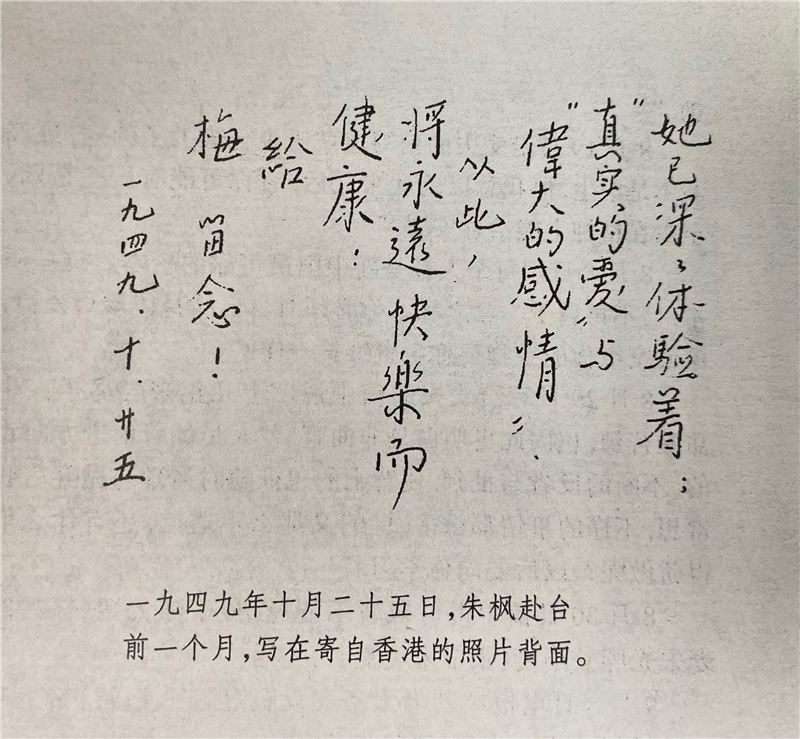 她已深〻体驗着：
"真实的愛"与
"偉大的感情"．
以此，
将永遠快樂而
健康！
給
梅 留念！
一九四九．十．廿五
一九四九年十月二十五日，朱枫赴台
前一个月，写在寄自香港的照片背面。